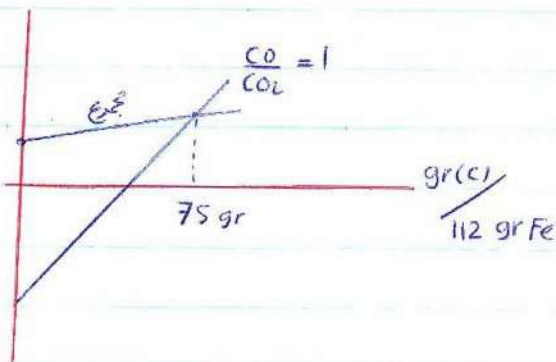 CO/CO₂ = 1
مجموع
75 gr
gr(C)/112 gr Fe